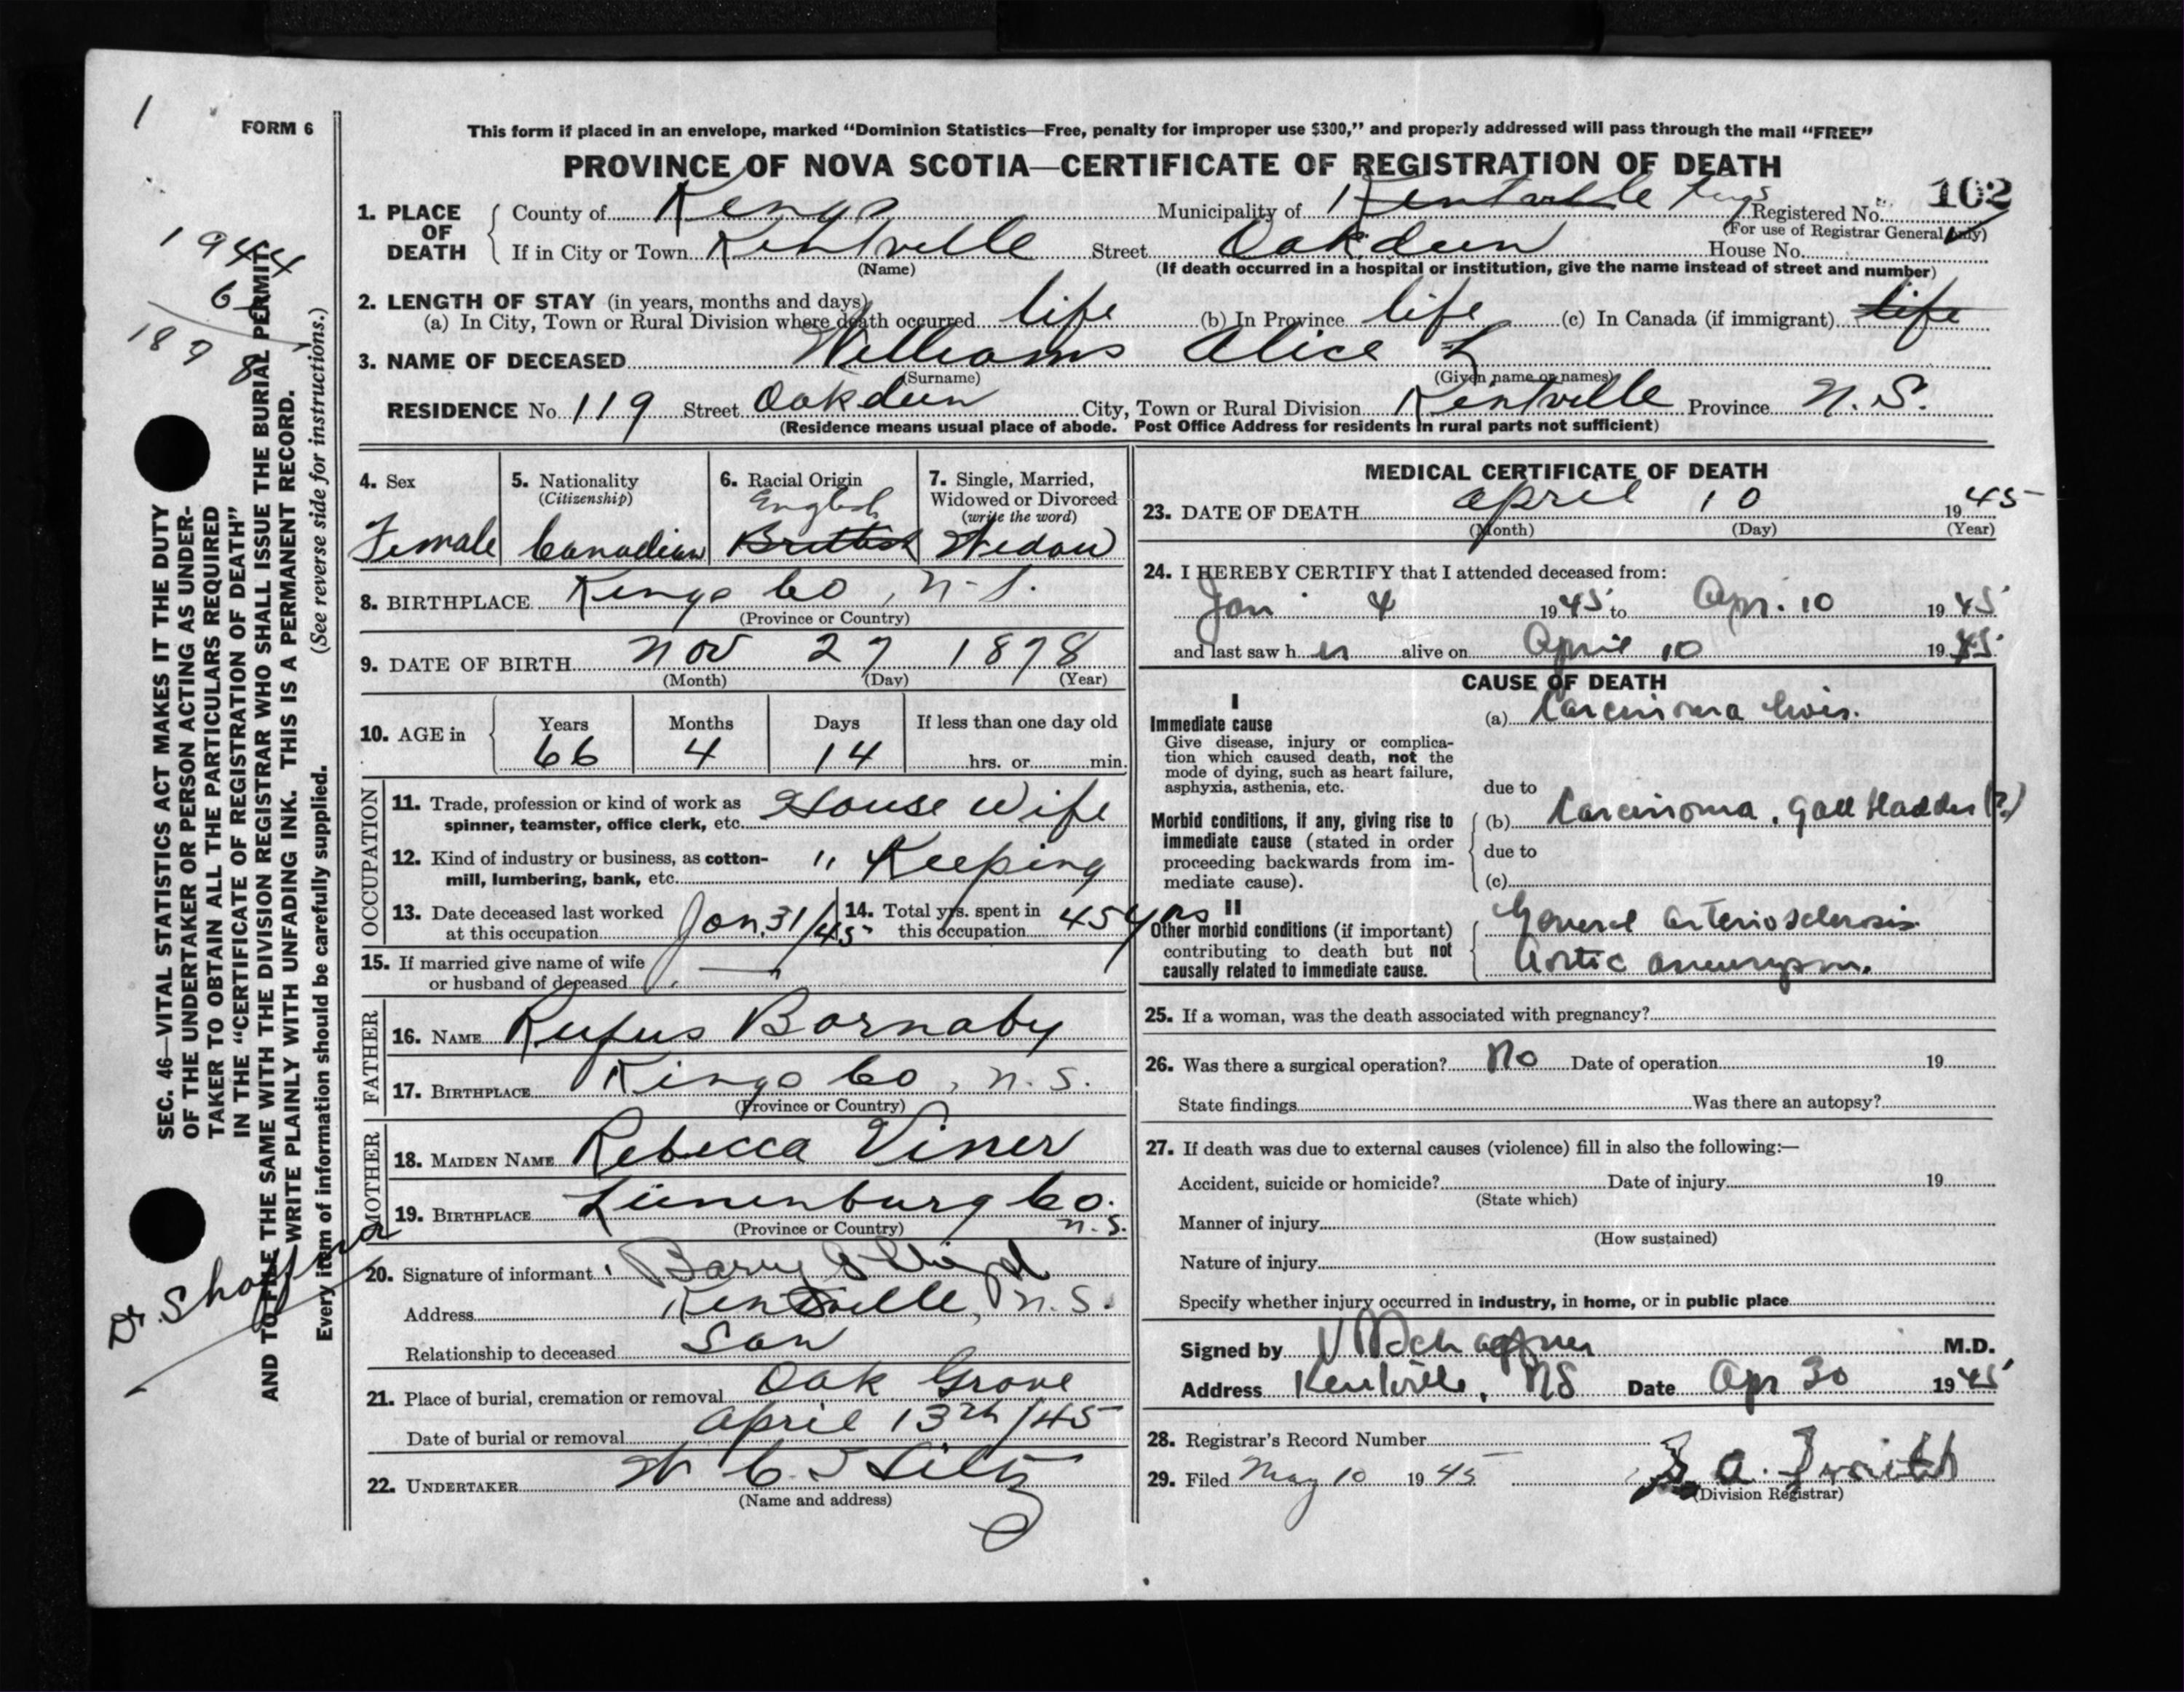 1
FORM 6
This form if placed in an envelope, marked "Dominion Statistics—Free, penalty for improper use $300," and properly addressed will pass through the mail "FREE"
PROVINCE OF NOVA SCOTIA—CERTIFICATE OF REGISTRATION OF DEATH
102
1. PLACE OF DEATH
County of Kings Municipality of Kentville Kings Registered No.
(For use of Registrar General only)
If in City or Town Kentville Street Oakdeen House No.
(Name) (If death occurred in a hospital or institution, give the name instead of street and number)
2. LENGTH OF STAY (in years, months and days)
(a) In City, Town or Rural Division where death occurred life (b) In Province life (c) In Canada (if immigrant) life
3. NAME OF DECEASED Williams Alice L
(Surname) (Given name or names)
RESIDENCE No. 119 Street Oakdeen City, Town or Rural Division Kentville Province N.S.
(Residence means usual place of abode. Post Office Address for residents in rural parts not sufficient)
4. Sex
Female
5. Nationality
(Citizenship)
Canadian
6. Racial Origin
English
British
7. Single, Married,
Widowed or Divorced
(write the word)
Widow
8. BIRTHPLACE Kings Co, N.S.
(Province or Country)
9. DATE OF BIRTH Nov 27 1878
(Month) (Day) (Year)
10. AGE in Years Months Days If less than one day old
66 4 14 hrs. or min.
OCCUPATION
11. Trade, profession or kind of work as House Wife
spinner, teamster, office clerk, etc.
12. Kind of industry or business, as cotton- " Keeping
mill, lumbering, bank, etc.
13. Date deceased last worked
at this occupation Jan. 31/45
14. Total yrs. spent in
this occupation 45 yrs
15. If married give name of wife
or husband of deceased
FATHER
16. NAME Rufus Barnaby
17. BIRTHPLACE Kings Co, N.S.
(Province or Country)
MOTHER
18. MAIDEN NAME Rebecca
19. BIRTHPLACE Lunenburg Co.
N.S.
(Province or Country)
20. Signature of informant
Address Kentville, N.S.
Relationship to deceased Son
21. Place of burial, cremation or removal Oak Grove
Date of burial or removal April 13th/45
22. UNDERTAKER W C Hiltz
(Name and address)
MEDICAL CERTIFICATE OF DEATH
23. DATE OF DEATH April 10 1945
(Month) (Day) (Year)
24. I HEREBY CERTIFY that I attended deceased from:
Jan 4 1945 to Apr. 10 1945
and last saw her alive on April 10 1945
CAUSE OF DEATH
I
Immediate cause
Give disease, injury or complica-
tion which caused death, not the
mode of dying, such as heart failure,
asphyxia, asthenia, etc.
(a) Carcinoma liver.
due to
Morbid conditions, if any, giving rise to
immediate cause (stated in order
proceeding backwards from im-
mediate cause).
(b) Carcinoma, Gall bladder (?)
due to
(c)
II
Other morbid conditions (if important)
contributing to death but not
causally related to immediate cause.
General arteriosclerosis
Aortic aneurysm.
25. If a woman, was the death associated with pregnancy?
26. Was there a surgical operation? No Date of operation 19
State findings Was there an autopsy?
27. If death was due to external causes (violence) fill in also the following:—
Accident, suicide or homicide? Date of injury 19
(State which)
Manner of injury
(How sustained)
Nature of injury
Specify whether injury occurred in industry, in home, or in public place
Signed by M.D.
Address Kentville, NS Date Apr 30 1945
28. Registrar's Record Number
29. Filed May 10 1945
(Division Registrar)
SEC. 46—VITAL STATISTICS ACT MAKES IT THE DUTY
OF THE UNDERTAKER OR PERSON ACTING AS UNDER-
TAKER TO OBTAIN ALL THE PARTICULARS REQUIRED
IN THE "CERTIFICATE OF REGISTRATION OF DEATH"
AND TO FILE THE SAME WITH THE DIVISION REGISTRAR WHO SHALL ISSUE THE BURIAL PERMIT.
WRITE PLAINLY WITH UNFADING INK. THIS IS A PERMANENT RECORD.
Every item of information should be carefully supplied. (See reverse side for instructions.)
1944
66
1878